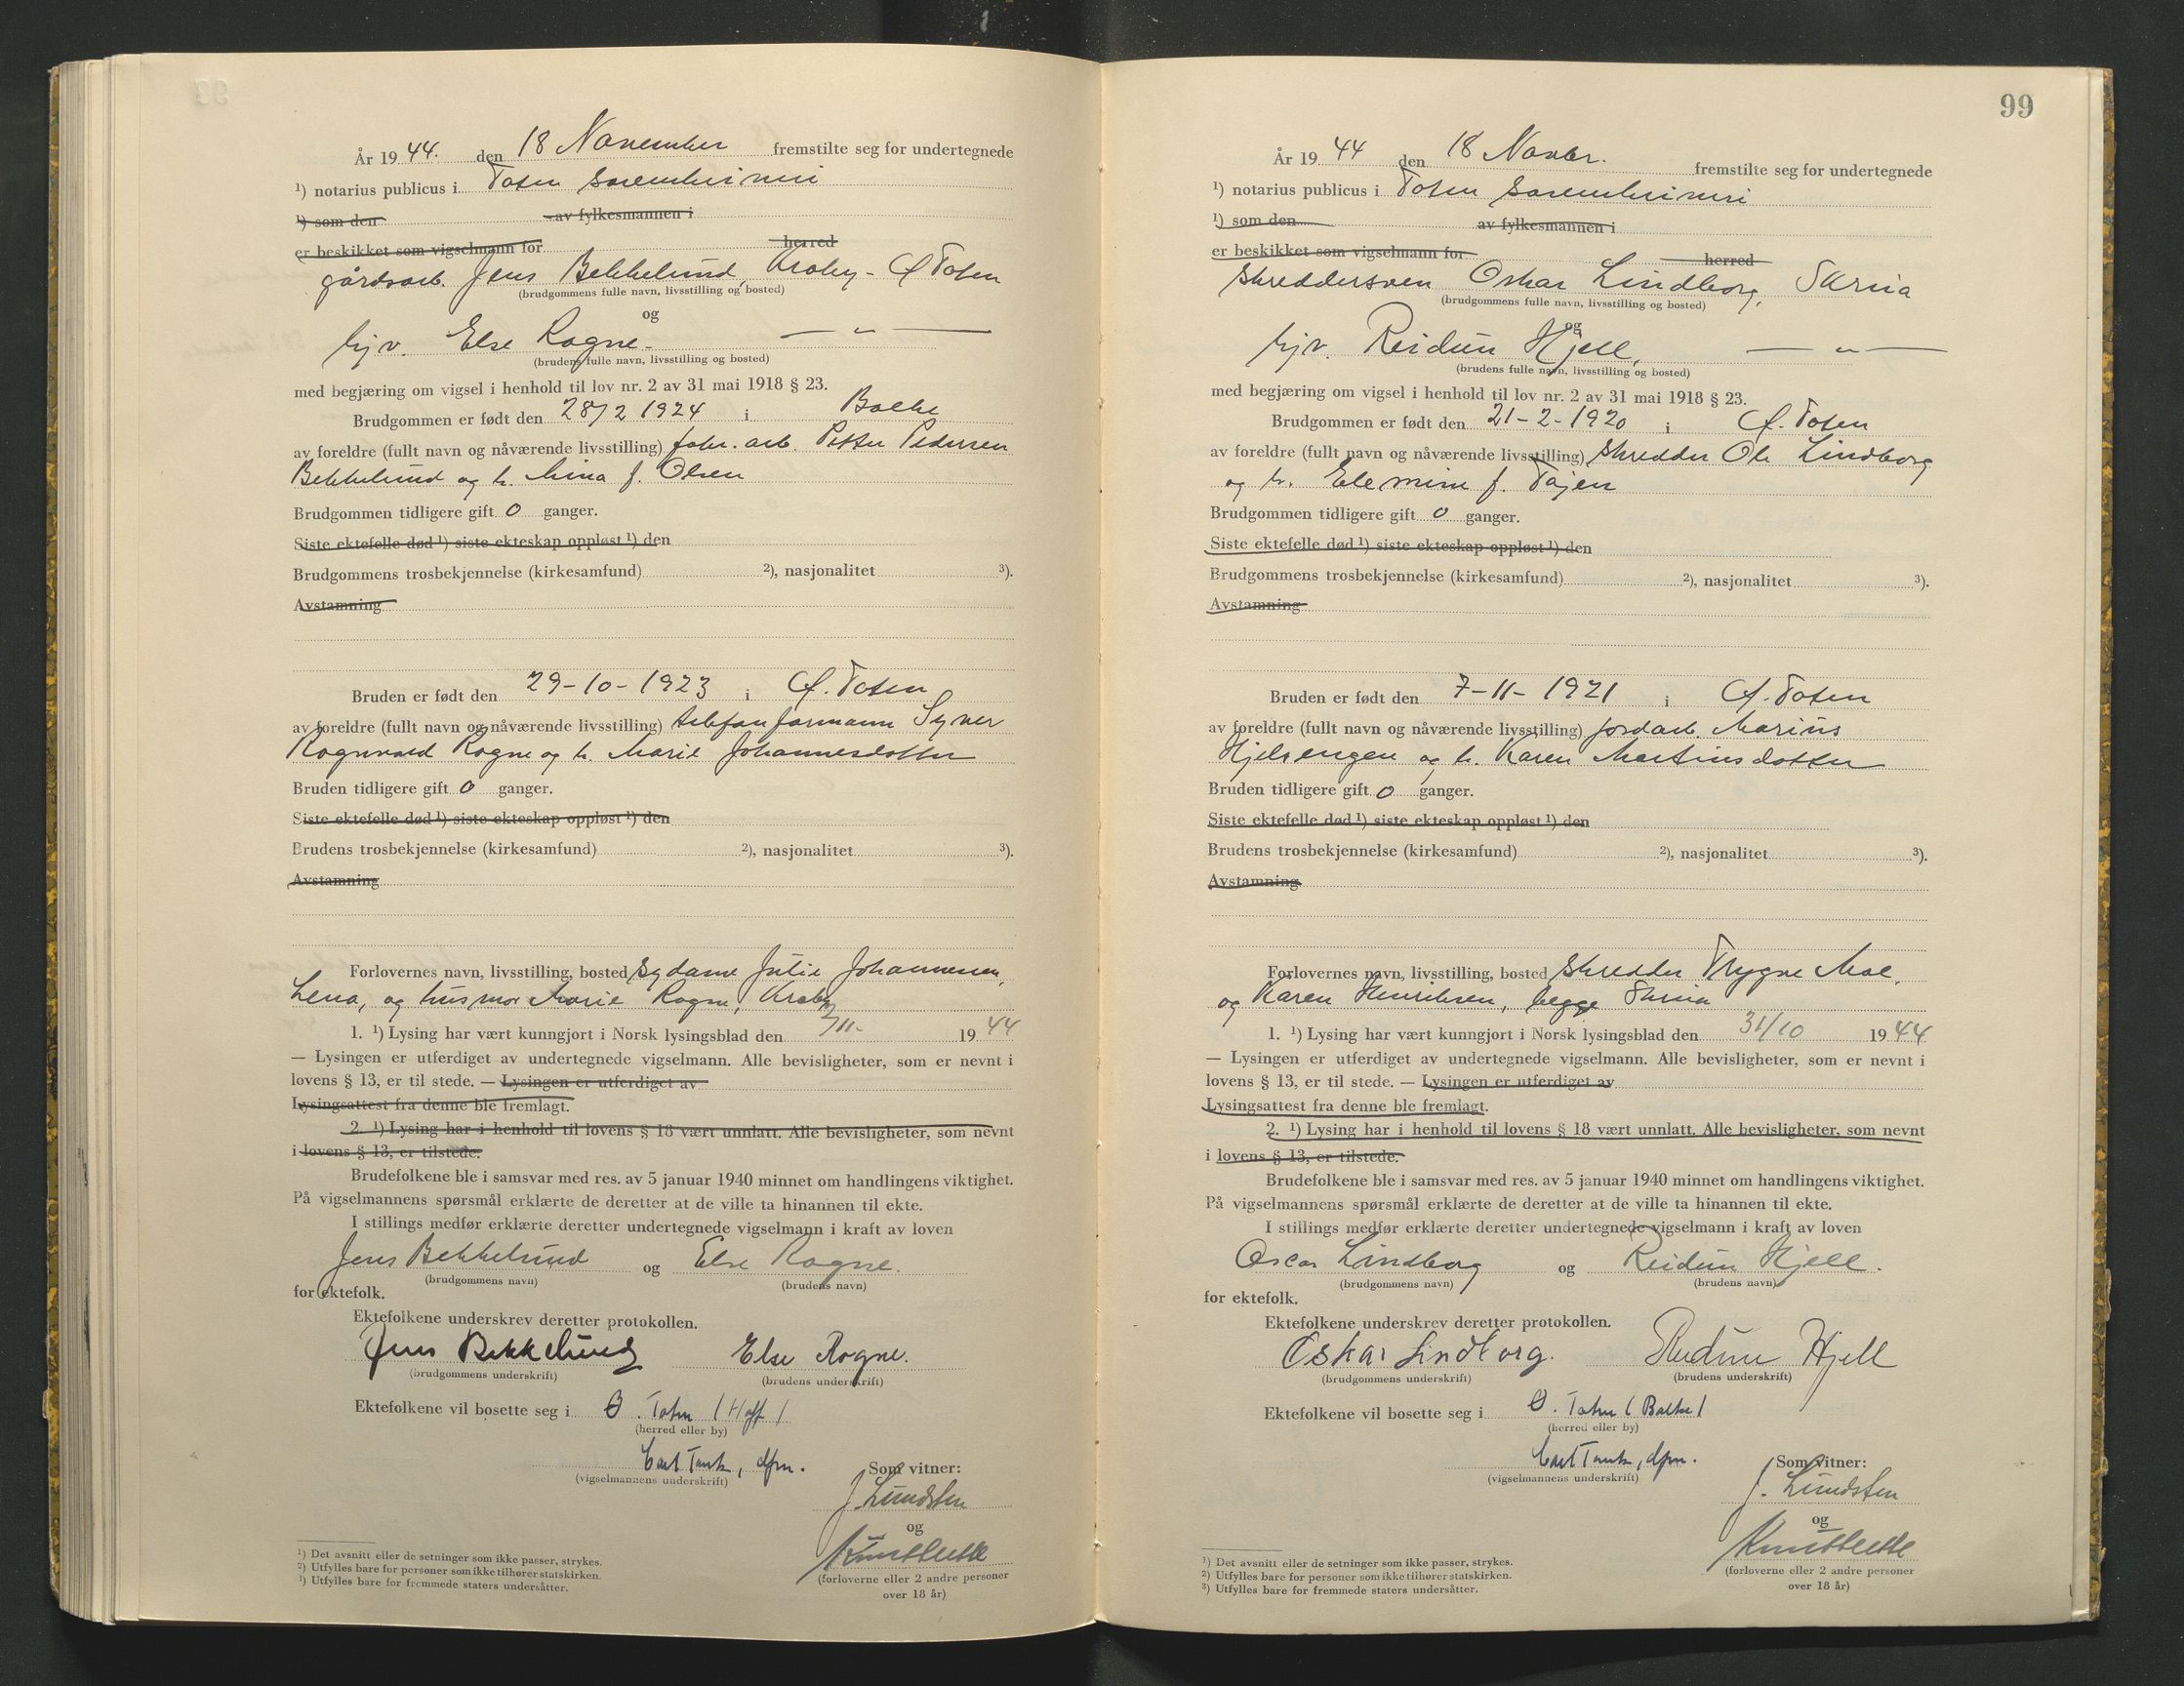 År 19 44. den 18 November fremstilte seg for undertegnede
¹) notarius publicus i Toten sorenskriveri
¹) som den av fylkesmannen i
er beskikket som vigselmann for herred
gårdsarb. Jens Bekkelund, Kraby - Ø Toten
(brudgommens fulle navn, livsstilling og bosted)
og
hjv. Else Rogne - — " —
(brudens fulle navn, livsstilling og bosted)
med begjæring om vigsel i henhold til lov nr. 2 av 31 mai 1918 § 23.
Brudgommen er født den 28/2 1924 i Balke
av foreldre (fullt navn og nåværende livsstilling) fabr. arb. Petter Pedersen
Bekkelund og h. Mina f. Olsen
Brudgommen tidligere gift 0 ganger.
Siste ektefelle død ¹) siste ekteskap oppløst ¹) den
Brudgommens trosbekjennelse (kirkesamfund) ²), nasjonalitet ³).
Avstamning
Bruden er født den 29-10-1923 i Ø. Toten
av foreldre (fullt navn og nåværende livsstilling) telefonformann Syver
Rognvald Rogne og h. Marie Johannesdotter
Bruden tidligere gift 0 ganger.
Siste ektefelle død ¹) siste ekteskap oppløst ¹) den
Brudens trosbekjennelse (kirkesamfund) ²), nasjonalitet ³).
Avstamning
Forlovernes navn, livsstilling, bosted sydame Julie Johannessen,
Lena, og husmor Marie Rogne, Kraby
1. ¹) Lysing har vært kunngjort i Norsk lysingsblad den 2/11- 19 44
— Lysingen er utferdiget av undertegnede vigselmann. Alle bevisligheter, som er nevnt i
lovens § 13, er til stede. — Lysingen er utferdiget av
Lysingsattest fra denne ble fremlagt.
2. ¹) Lysing har i henhold til lovens § 18 vært unnlatt. Alle bevisligheter, som nevnt
i lovens § 13, er tilstede.
Brudefolkene ble i samsvar med res. av 5 januar 1940 minnet om handlingens viktighet.
På vigselmannens spørsmål erklærte de deretter at de ville ta hinannen til ekte.
I stillings medfør erklærte deretter undertegnede vigselmann i kraft av loven
Jens Bekkelund og Else Rogne.
(brudgommens navn) (brudens navn)
for ektefolk.
Ektefolkene underskrev deretter protokollen.
Jens Bekkelund Else Rogne.
(brudgommens underskrift) (brudens underskrift)
Ektefolkene vil bosette seg i Ø. Toten (Hoff)
(herred eller by)
Carl Tank, dfm.
(vigselmannens underskrift)
Som vitner:
J. Lundsten
og
(forloverne eller 2 andre personer
over 18 år)
¹) Det avsnitt eller de setninger som ikke passer, strykes.
²) Utfylles bare for personer som ikke tilhører statskirken.
³) Utfylles bare for fremmede staters undersåtter.
99
År 19 44 den 18 Novbr. fremstilte seg for undertegnede
¹) notarius publicus i Toten sorenskriveri
¹) som den av fylkesmannen i
er beskikket som vigselmann for herred
skreddersven Oskar Lindborg, Skreia
(brudgommens fulle navn, livsstilling og bosted)
og
hjv. Reidun Hjell, — " —
(brudens fulle navn, livsstilling og bosted)
med begjæring om vigsel i henhold til lov nr. 2 av 31 mai 1918 § 23.
Brudgommen er født den 21-2-1920 i Ø. Toten
av foreldre (fullt navn og nåværende livsstilling) skredder Ole Lindborg
og h. Elemine f. Tajen
Brudgommen tidligere gift 0 ganger.
Siste ektefelle død ¹) siste ekteskap oppløst ¹) den
Brudgommens trosbekjennelse (kirkesamfund) ²), nasjonalitet ³).
Avstamning
Bruden er født den 7-11-1921 i Ø. Toten
av foreldre (fullt navn og nåværende livsstilling) jordarb. Marius
Hjelsengen og h. Karen Martinsdotter
Bruden tidligere gift 0 ganger.
Siste ektefelle død ¹) siste ekteskap oppløst ¹) den
Brudens trosbekjennelse (kirkesamfund) ²), nasjonalitet ³).
Avstamning
Forlovernes navn, livsstilling, bosted skredder Trygve Moe,
og Karen Henriksen, begge Skreia
1. ¹) Lysing har vært kunngjort i Norsk lysingsblad den 31/10 19 44
— Lysingen er utferdiget av undertegnede vigselmann. Alle bevisligheter, som er nevnt i
lovens § 13, er til stede. — Lysingen er utferdiget av
Lysingsattest fra denne ble fremlagt.
2. ¹) Lysing har i henhold til lovens § 18 vært unnlatt. Alle bevisligheter, som nevnt
i lovens § 13, er tilstede.
Brudefolkene ble i samsvar med res. av 5 januar 1940 minnet om handlingens viktighet.
På vigselmannens spørsmål erklærte de deretter at de ville ta hinannen til ekte.
I stillings medfør erklærte deretter undertegnede vigselmann i kraft av loven
Oscar Lindborg og Reidun Hjell.
(brudgommens navn) (brudens navn)
for ektefolk.
Ektefolkene underskrev deretter protokollen.
Oskar Lindborg. Reidun Hjell
(brudgommens underskrift) (brudens underskrift)
Ektefolkene vil bosette seg i Ø. Toten (Balke)
(herred eller by)
Carl Tank, dfm.
(vigselmannens underskrift)
Som vitner:
J. Lundsten
og
(forloverne eller 2 andre personer
over 18 år)
¹) Det avsnitt eller de setninger som ikke passer, strykes.
²) Utfylles bare for personer som ikke tilhører statskirken.
³) Utfylles bare for fremmede staters undersåtter.